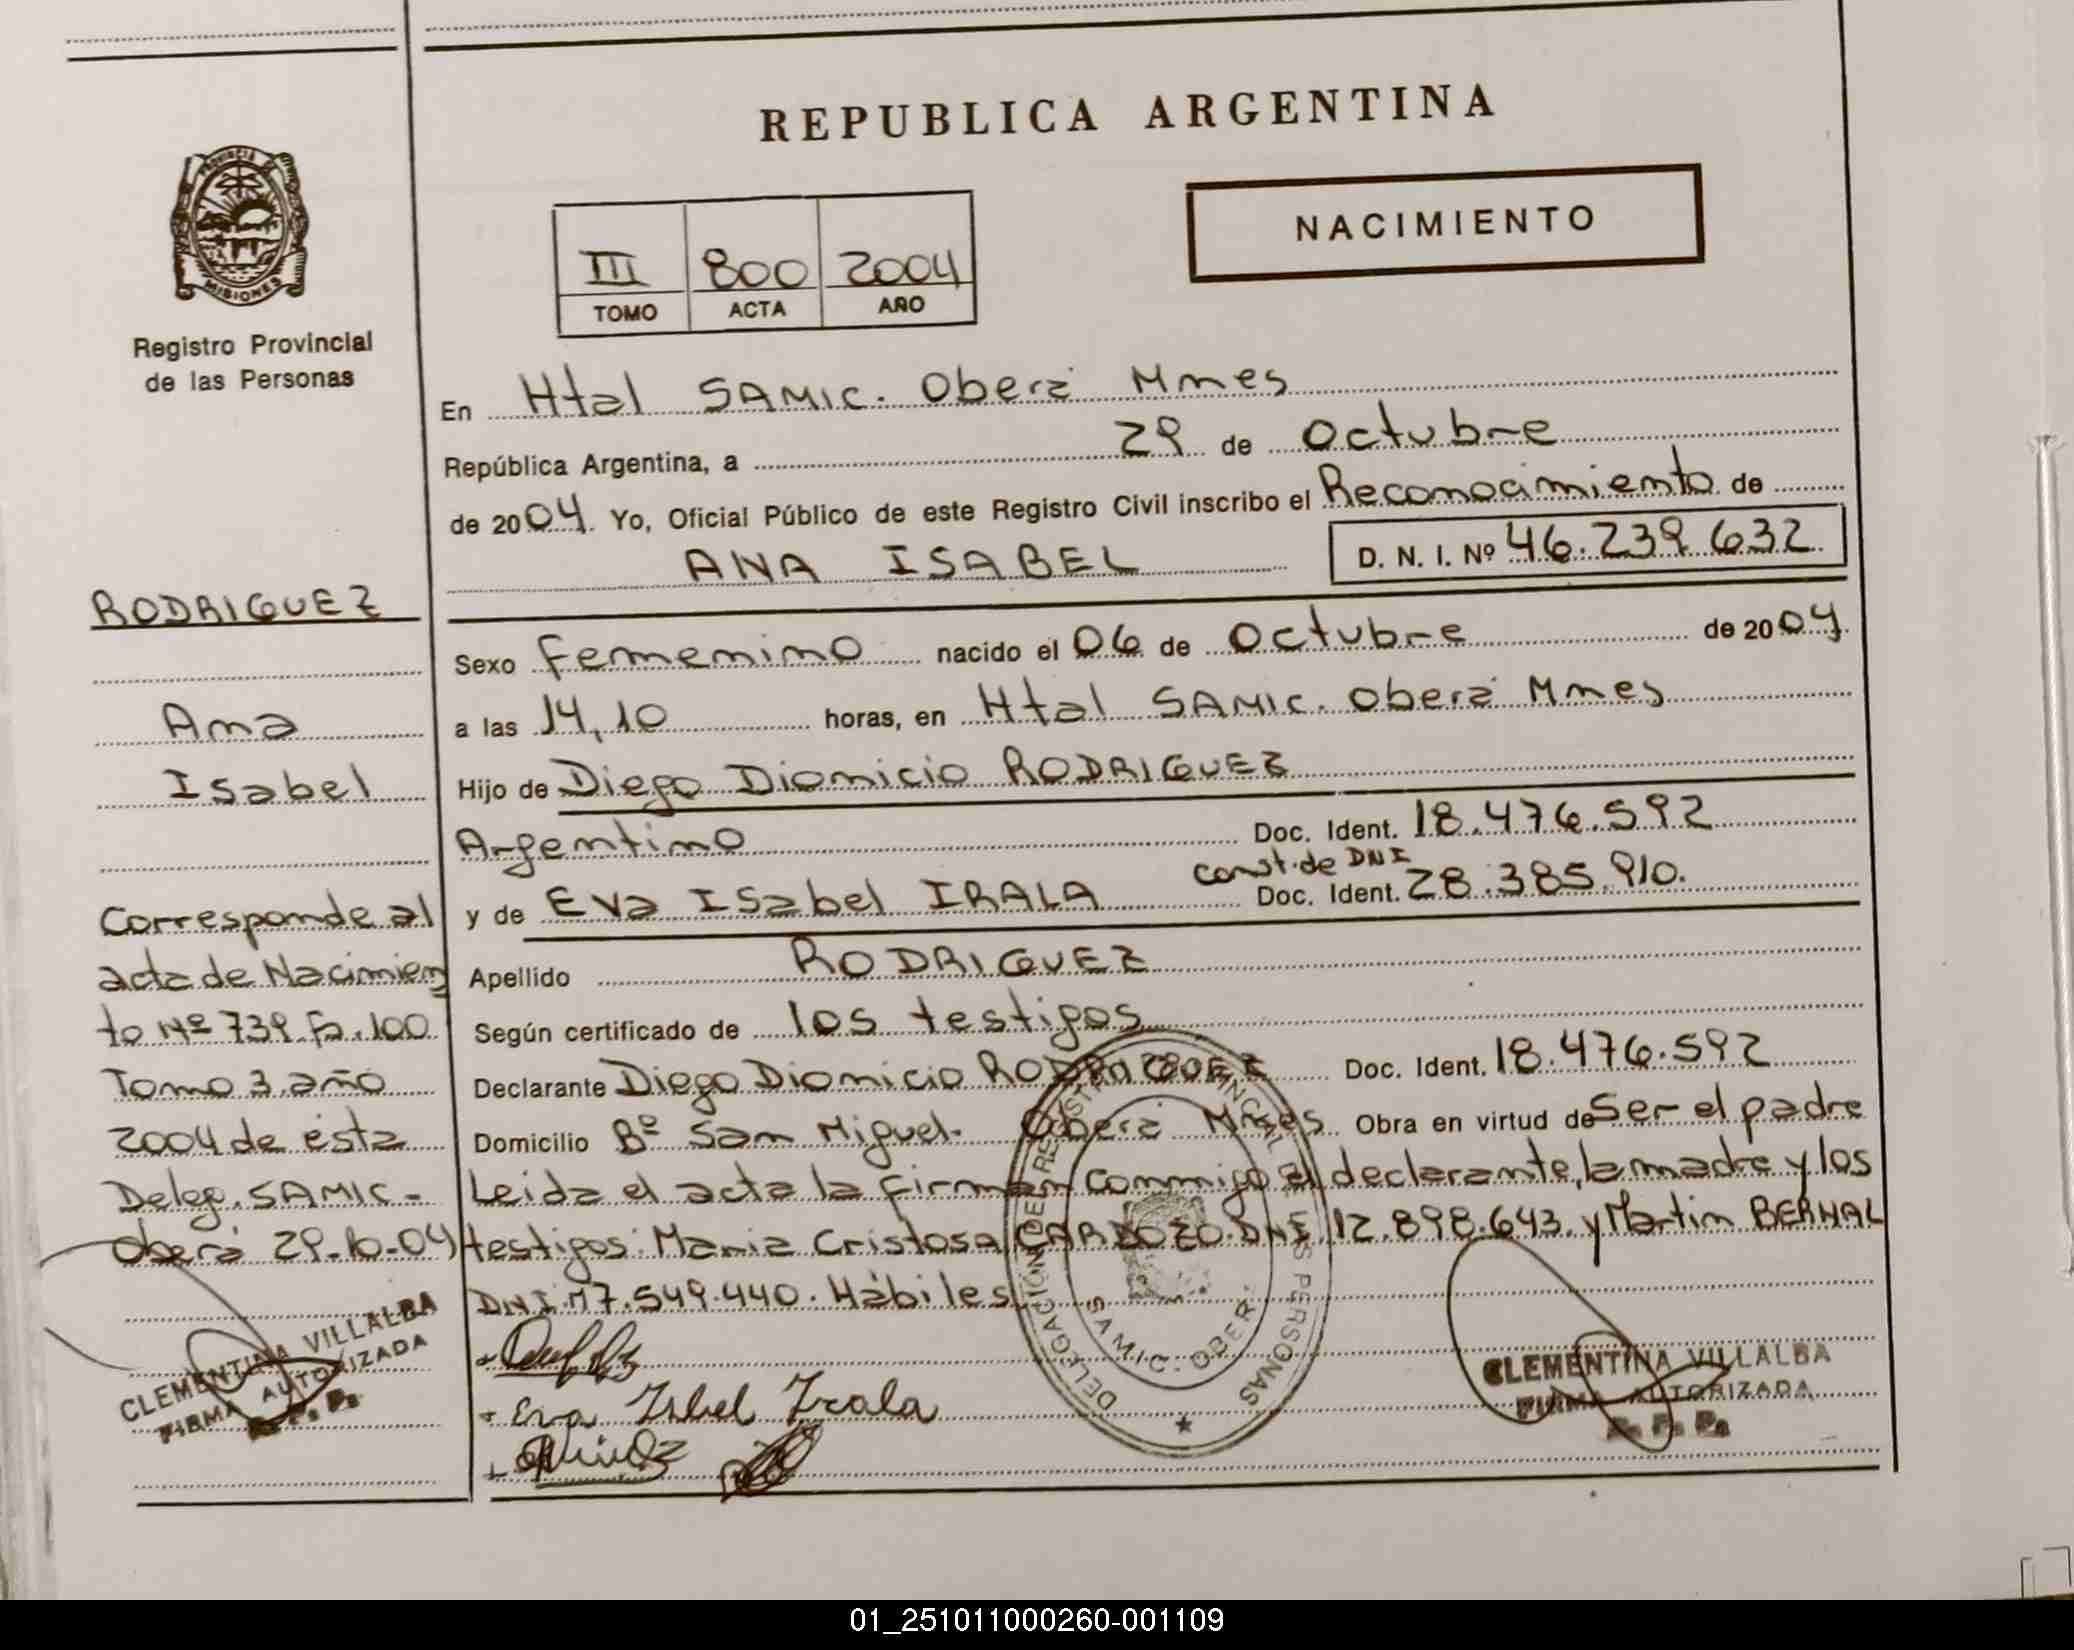 REPUBLICA ARGENTINA
NACIMIENTO
PROVINCIA DE
MISIONES
Registro Provincial
de las Personas
III 800 2004
TOMO ACTA AÑO
En Htal SAMIC. Oberá Mnes
República Argentina, a 29 de Octubre
de 2004. Yo, Oficial Público de este Registro Civil inscribo el Reconocimiento de
ANA ISABEL D. N. I. Nº 46.239.632
Sexo Femenino nacido el 06 de Octubre de 2004
a las 14,10 horas, en Htal SAMIC. Oberá Mnes
Hijo de Diego Dionicio RODRIGUEZ
Argentino Doc. Ident. 18.476.592
const. de DNI
y de Eva Isabel IRALA Doc. Ident. 28.385.910.
Apellido RODRIGUEZ
Según certificado de los testigos
Declarante Diego Dionicio RODRIGUEZ Doc. Ident. 18.476.592
Domicilio Bº San Miguel. Oberá Mnes Obra en virtud de Ser el padre
Leida el acta la firman conmigo el declarante, la madre y los
testigos: Maria Cristosa CARDOZO. DNI 12.898.643. y Martin BERNAL
DNI 17.549.440. Hábiles
Eva Isbel Irala
CLEMENTINA VILLALBA
FIRMA AUTORIZADA
R. P. P.
DELEGACIÓN DEL REGISTRO PROVINCIAL DE LAS PERSONAS
SAMIC - OBERÁ
RODRIGUEZ
Ana
Isabel
Corresponde al
acta de Nacimien
to Nº 739. Fo. 100
Tomo 3. año
2004 de ésta
Deleg. SAMIC -
Oberá 29-10-04
CLEMENTINA VILLALBA
FIRMA AUTORIZADA
R. P. P.
01_251011000260-001109